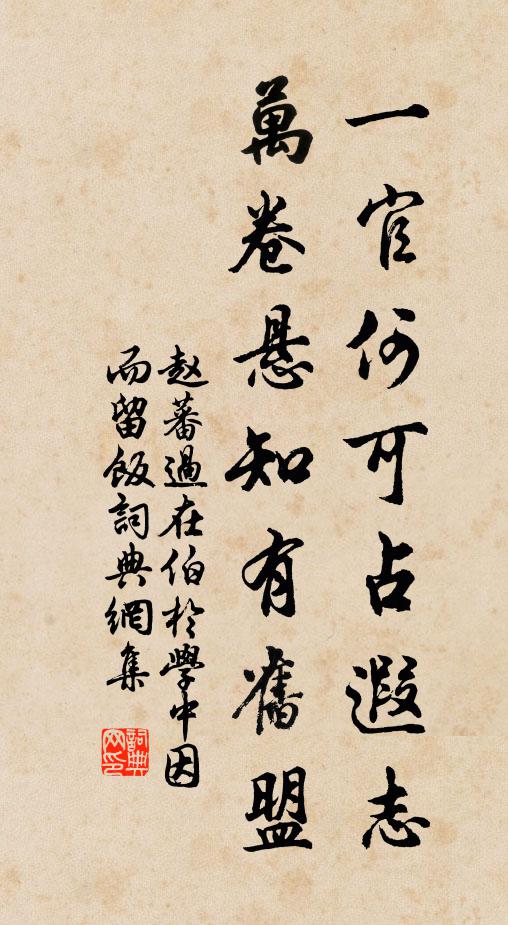 一官何可占遐志
萬卷悬知有舊盟
赵蕃過在伯於學中因
而留飯詞典網集
詞典网印